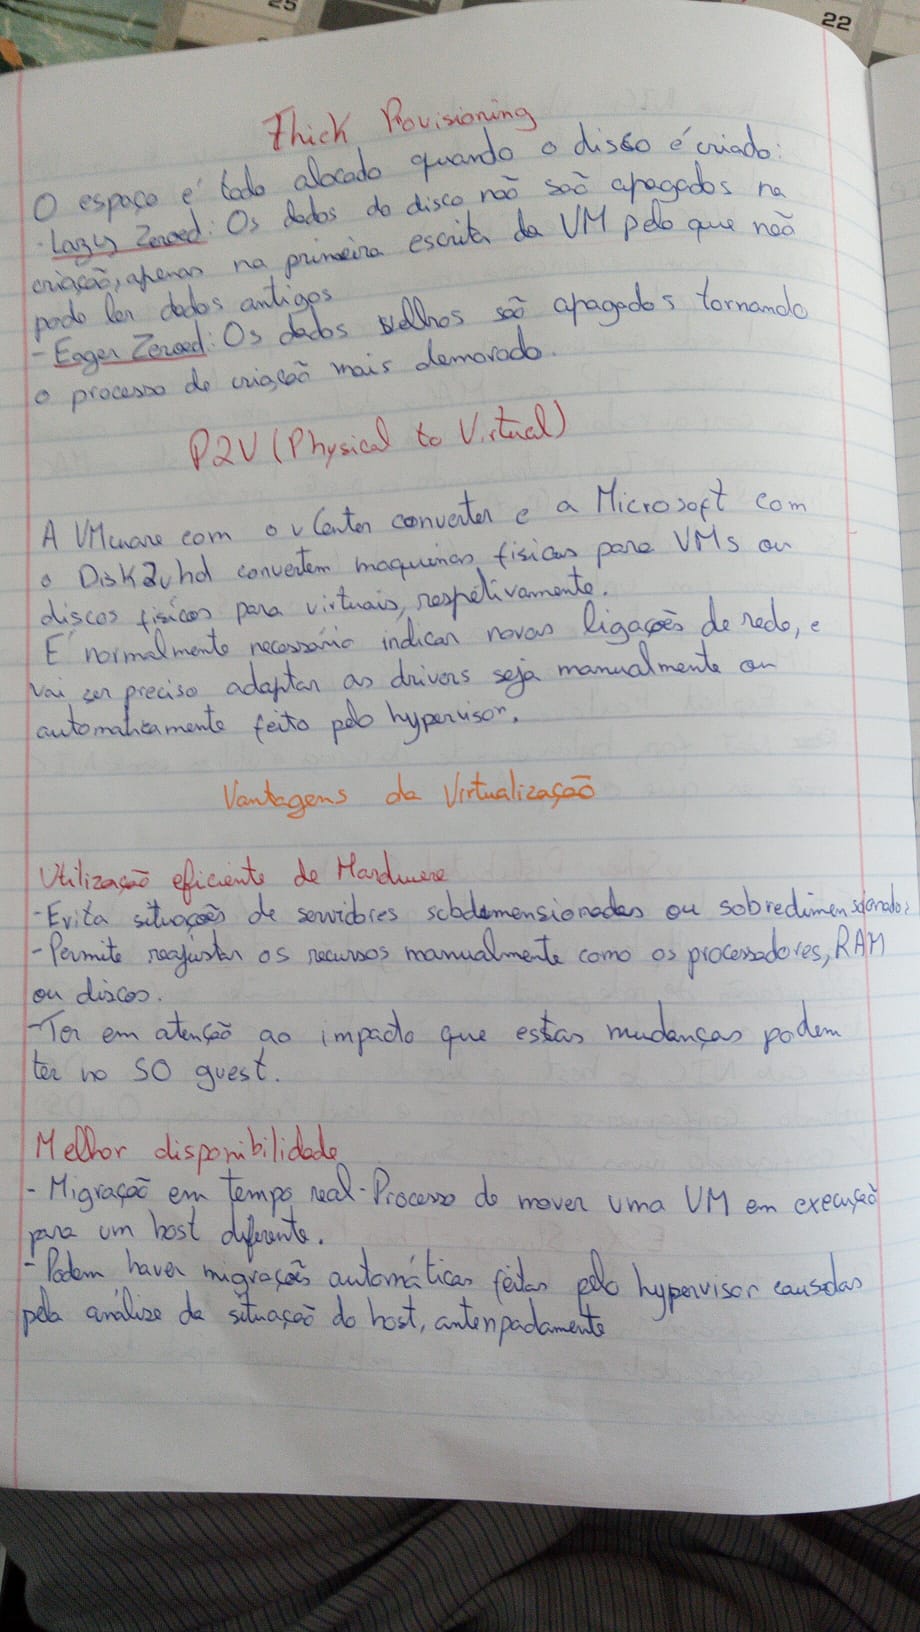 25
22
Thick Provisioning
O espaço é todo alocado quando o disco é criado:
·Lazy Zeroed: Os dados do disco não são apagados na
criação, apenas na primeira escrita da VM pelo que não
pode ler dados antigos
-Eager Zeroed: Os dados velhos são apagados tornando
o processo de criação mais demorado.
P2V (Physical to Virtual)
A VMware com o vCenter converter e a Microsoft com
o Disk2vhd convertem maquinas fisicas para VMs ou
discos fisicos para virtuais, respetivamente.
É normalmente necessário indicar novas ligações de rede, e
vai ser preciso adaptar os drivers seja manualmente ou
automaticamente feito pelo hypervisor.
Vantagens da Virtualização
Utilização eficiente de Hardware
-Evita situações de servidores subdimensionados ou sobredimensionados
-Permite reajustar os recursos manualmente como os processadores, RAM
ou discos.
-Ter em atenção ao impacto que estas mudanças podem
ter no SO guest.
Melhor disponibilidade
- Migração em tempo real - Processo de mover uma VM em execução
para um host diferente.
- Podem haver migrações automáticas feitas pelo hypervisor causadas
pela análize da situação do host, antecipadamente